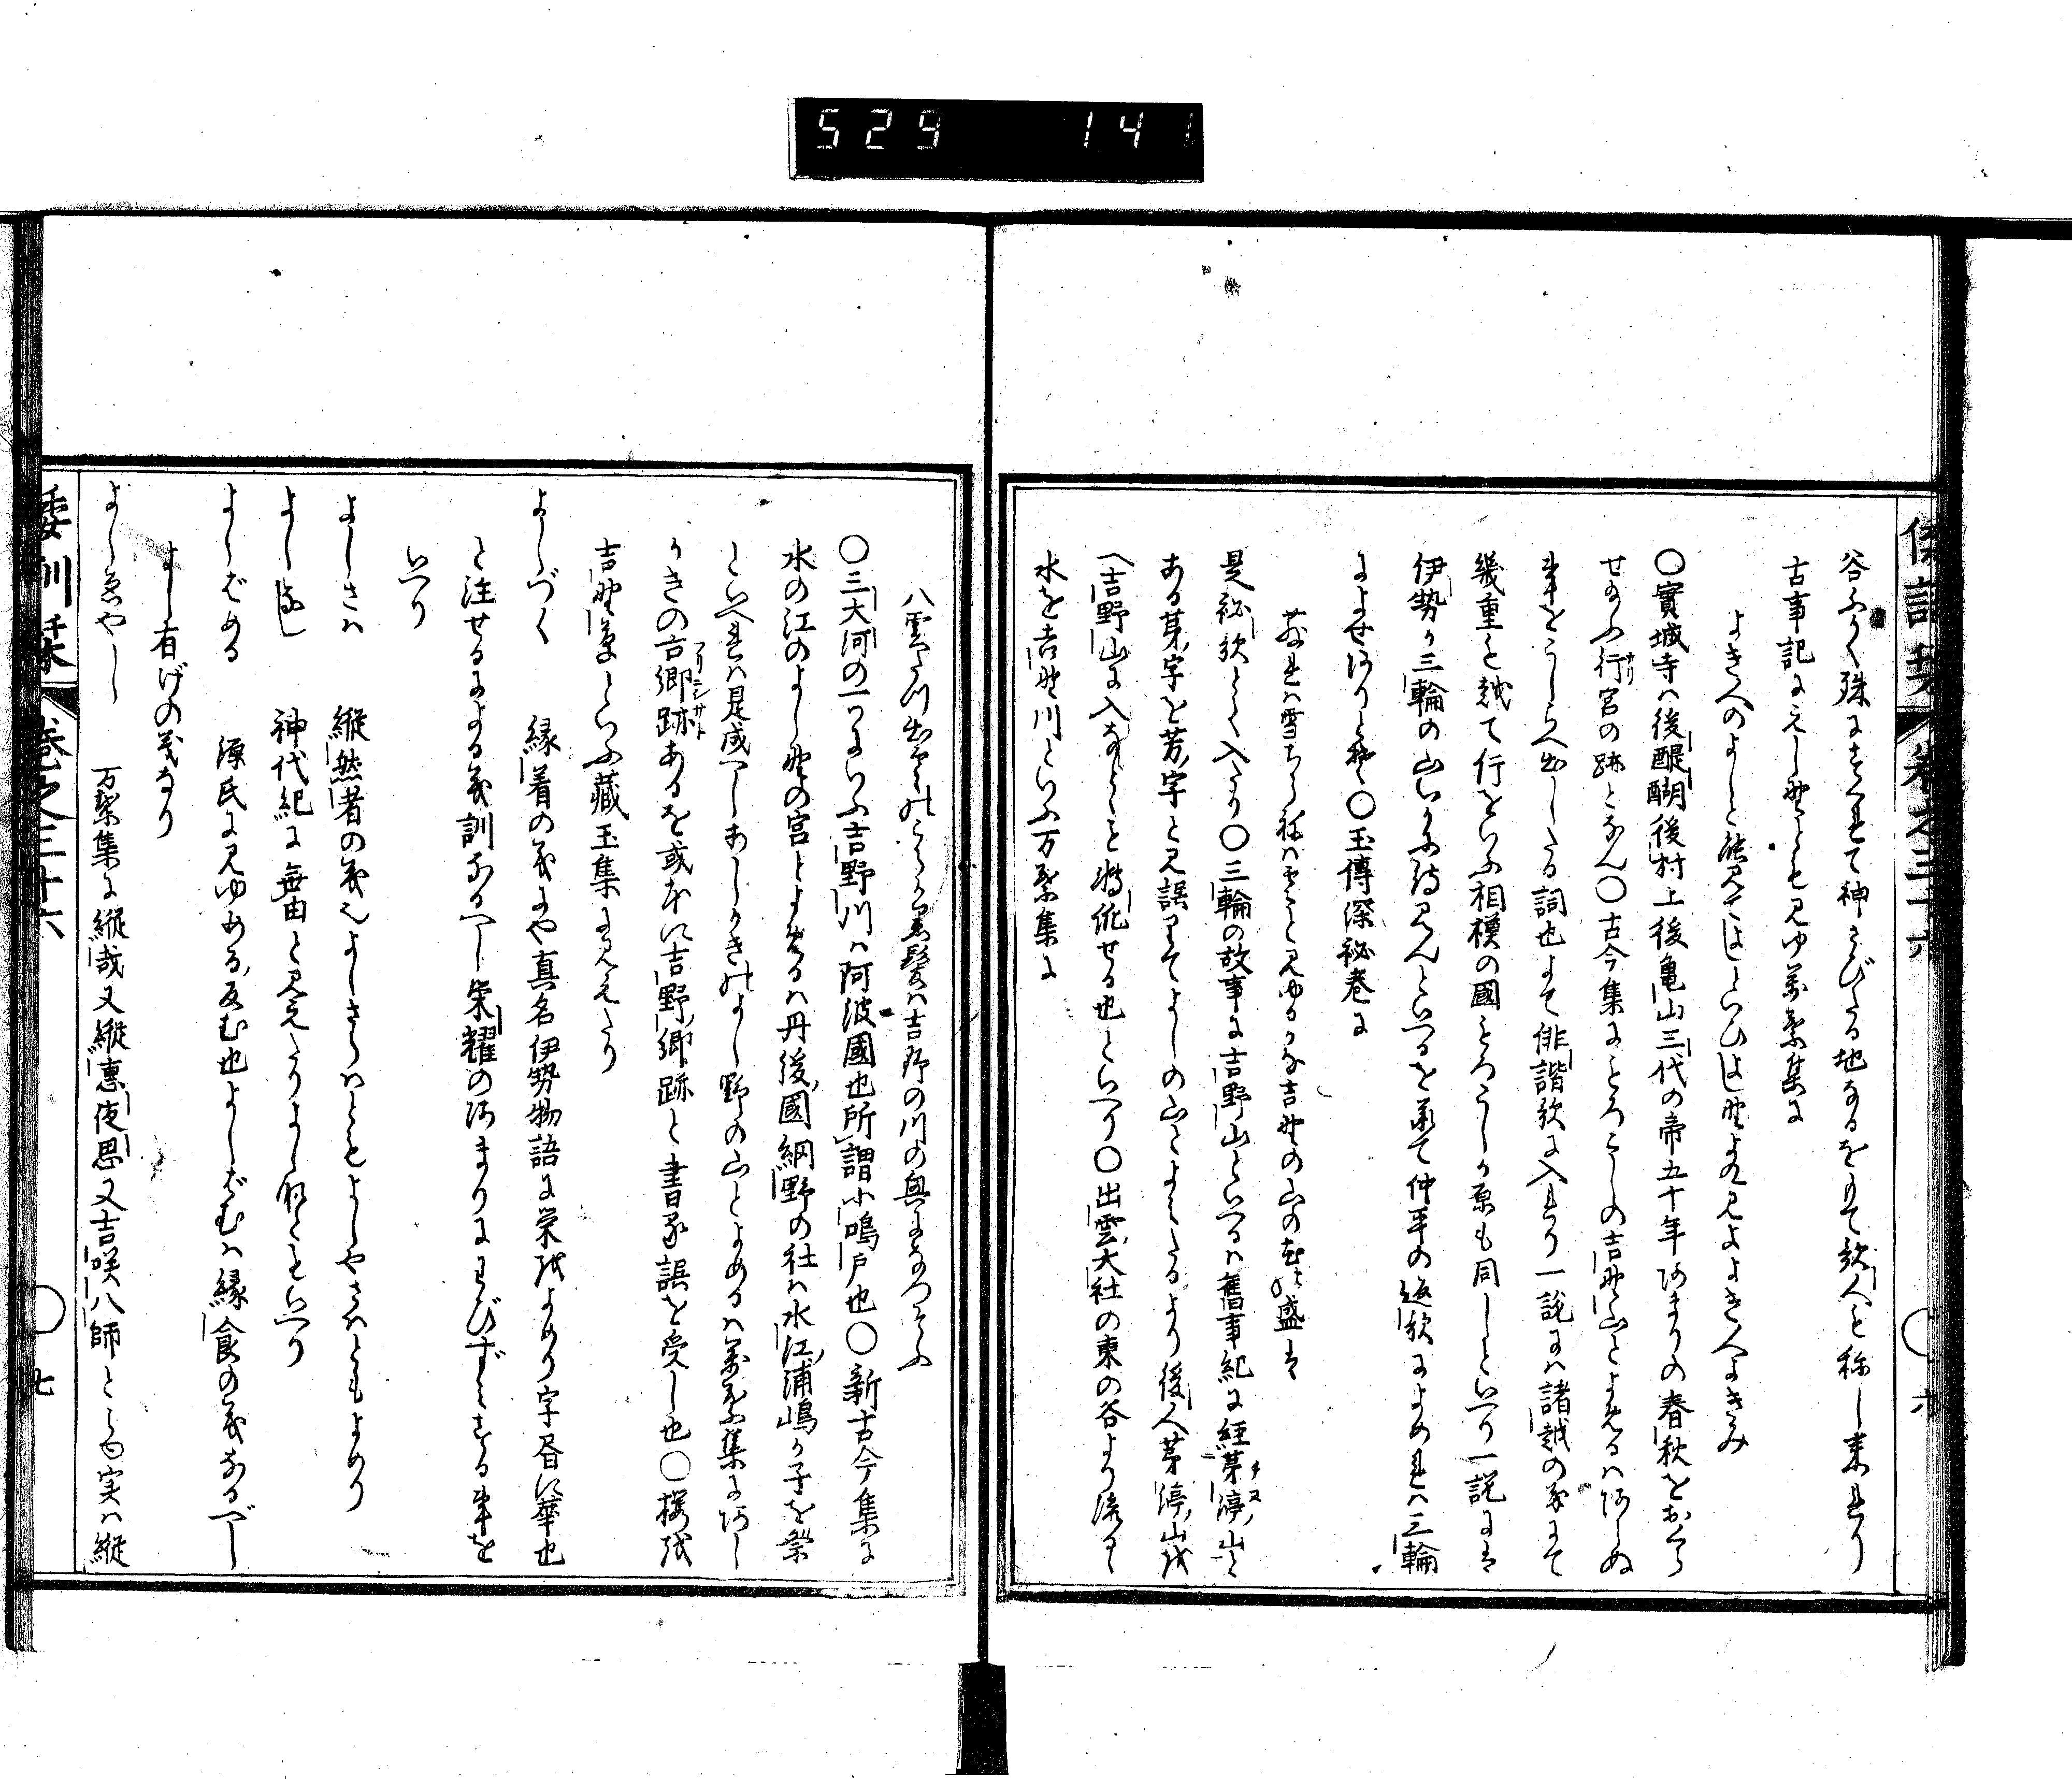 529 141
倭訓栞 巻之三十六 ○ 六
谷ふかく殊にすくれて神さびたる地なるをもて歌人と称し来れり
古事記にえし野とも見ゆ萬葉集に
よき人のよしと能見てよしといひし野よく見よよき人よきみ
○實城寺ハ後醍醐後村上後亀山三代の帝五十年あまりの春秋をおくら
せ給ふ行宮の跡となん○古今集にもろこしの吉野山とよめるハあらぬ
事をこしらへ出したる詞也よて俳諧歌に入れり一説にハ諸越の名にて
幾重も越て行をいふ相模の國もろこしか原も同しといへり一説には
伊勢か三輪の山いかに待見んといへるを承て仲平の返歌によめれハ三輪
によせありとぞ○玉傳深秘巻に
春れハ雪ちらねハ雲と見ゆるかな吉野の山の花の盛は
是秘歌とて入たり○三輪の故事に吉野山といへるハ舊事紀に経茅渟山と
ある茅字を芳字と見誤りてよしの山とよみたるより後人茅渟山を
吉野山に入なとゝ附佗せる也といへり○出雲大社の東の谷より流るゝ
水を吉野川といふ万葉集に
八雲たつ出雲のこらか黒髪ハ吉野の川の奥になつそふ
○三大河の一つにいふ吉野川ハ阿波國也所謂小鳴戸也○新古今集に
水の江のよし野の宮とよめるハ丹後國網野の社ハ水江浦嶋か子を祭
といへれハ是成へしあしかきのよし野の山とよめるハ萬葉集にあし
かきの古郷跡あるを或本に吉野郷跡と書る誤を受し也○櫻を
フリニシサト
吉野草といふ藏玉集に見えたり
よしづく 縁着の義にや真名伊勢物語に栄をよめり字書に華也
と注せるによる義訓なるへし栄耀のあまりにわびずみする事を
いへり
よしさハ 縦然者の義也よしさらハともよしやさハともよめり
よしなし 神代紀に無由と見えたりよしなくもいへり
よしばめる 源氏に見ゆめる反む也よしばむハ縁食の義なるべし
よし有げの義なり
よしゑやし 万葉集に縦哉又縦恵夜思又吉咲八師とも実ハ縦
倭訓栞 巻之三十六 ○ 七